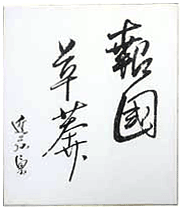 報國
草莽